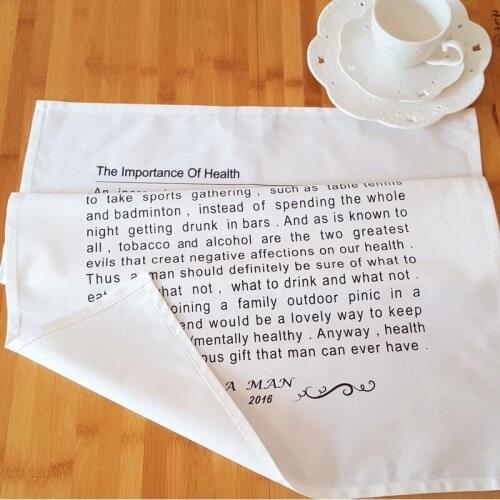 The Importance Of Health
to take sports gathering , such as table tennis
and badminton , instead of spending the whole
night getting drunk in bars . And as is known to
all , tobacco and alcohol are the two greatest
evils that creat negative affections on our health .
Thus a man should definitely be sure of what to
hat not , what to drink and what not .
oining a family outdoor pinic in a
end would be a lovely way to keep
mentally healthy . Anyway , health
ous gift that man can ever have .
A MAN
2016